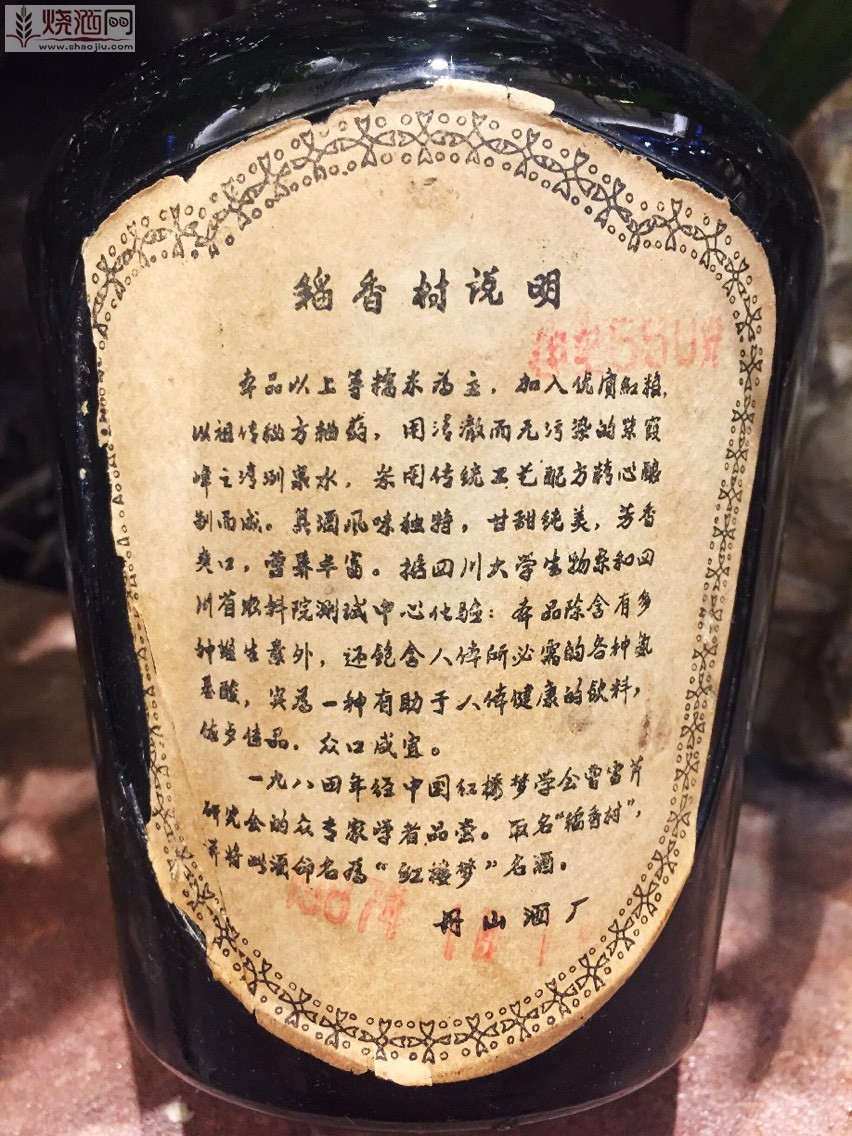 烧酒网
www.shaojiu.com
稻香村说明
本品以上等糯米为主,加入优质红粮,
以祖传秘方柚药,用清澈而无污染的紫霞
峰之清冽泉水,采用传统工艺配方精心酿
制而成。其酒风味独特,甘甜纯美,芳香
爽口,营养丰富。据四川大学生物系和四
川省农科院测试中心化验:本品除含有多
种维生素外,还饱含人体所必需的各种氨
基酸,实为一种有助于人体健康的饮料,
佐乡佳品,众口咸宜。
一九八四年经中国红楼梦学会曹雪芹
研究会的众专家学者品尝。取名“稻香村”,
并将此酒命名为“红楼梦”名酒。
丹山酒厂